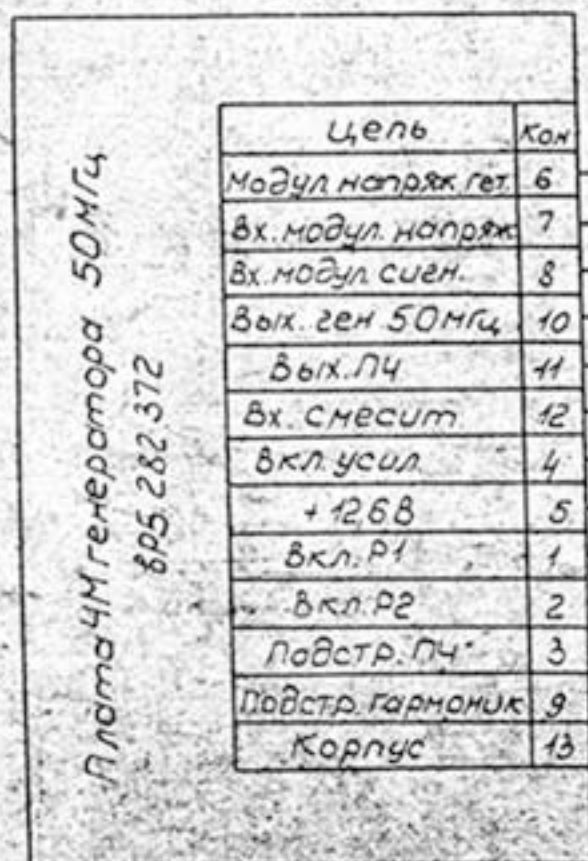 Плата ЧМ генератора 50МГц
вР5.282.372
Цепь Кон
Модул напряж. гет. 6
Вх. модул. напряж 7
Вх. модул сигн. 8
Вых. ген 50мгц 10
Вых. ПЧ 11
Вх. Смесит 12
Вкл. усил. 4
+12,6В 5
Вкл. Р1 1
Вкл. Р2 2
Подстр. ПЧ 3
Подстр. гармоник 9
Корпус 13